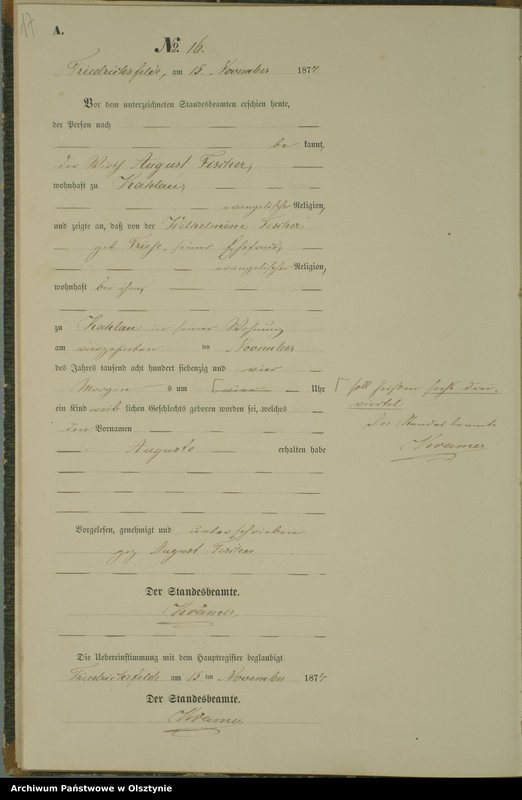 17
A.
No. 16.
Friedrichsfelde, am 15. November 1874
Vor dem unterzeichneten Standesbeamten erschien heute,
der Person nach
be kannt,
der Wirth August Fischer,
wohnhaft zu Kahlau,
evangelischer Religion,
und zeigte an, daß von der Wilhelmine Fischer
geb. seiner Ehefrau,
evangelischer Religion,
wohnhaft bei ihm,
zu Kahlau in seiner Wohnung
am vierzehnten ten November
des Jahres tausend acht hundert siebenzig und vier
Morgen s um Uhr
ein Kind weib lichen Geschlechts geboren worden sei, welches
den Vornamen
Auguste erhalten habe
Vorgelesen, genehmigt und unterschrieben
gez August Fischer
Der Standesbeamte.
Kramer
soll heißen sechs drei-
viertel
Der Standesbeamte
Kramer
Die Uebereinstimmung mit dem Hauptregister beglaubigt
Friedrichsfelde am 15 ten November 1874
Der Standesbeamte.
Kramer
Archiwum Państwowe w Olsztynie